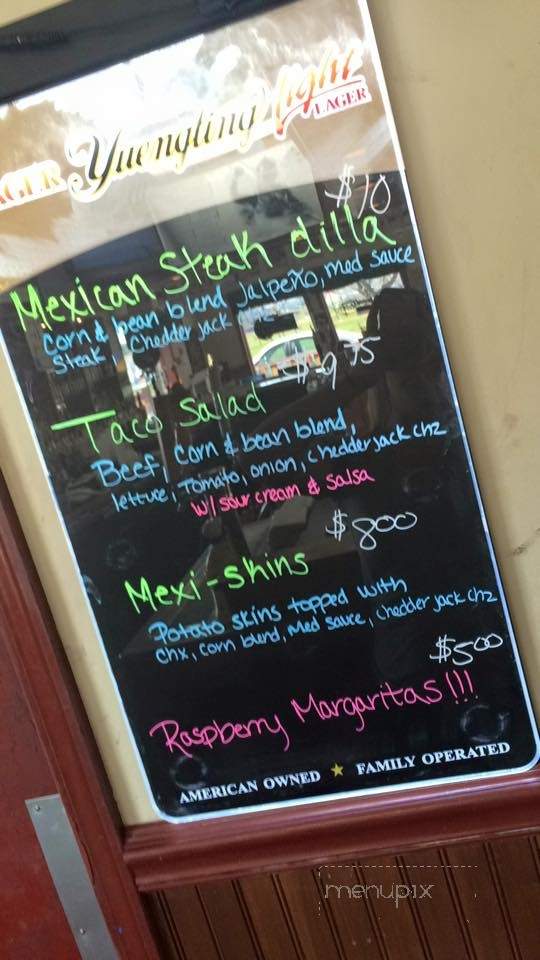 LAGER Yuengling Light LAGER
$10
Mexican Steak dilla
corn & bean blend jalpeño, med sauce
Steak, Chedder jack
$9.75
Taco Salad
Beef, corn & bean blend,
lettuce, Tomato, onion, chedder jack chz
w/ sour cream & salsa
$800
Mexi-skins
Potato skins topped with
chx, corn blend, Med sauce, chedder jack chz
$500
Raspberry Margaritas!!!
AMERICAN OWNED ★ FAMILY OPERATED
menupix